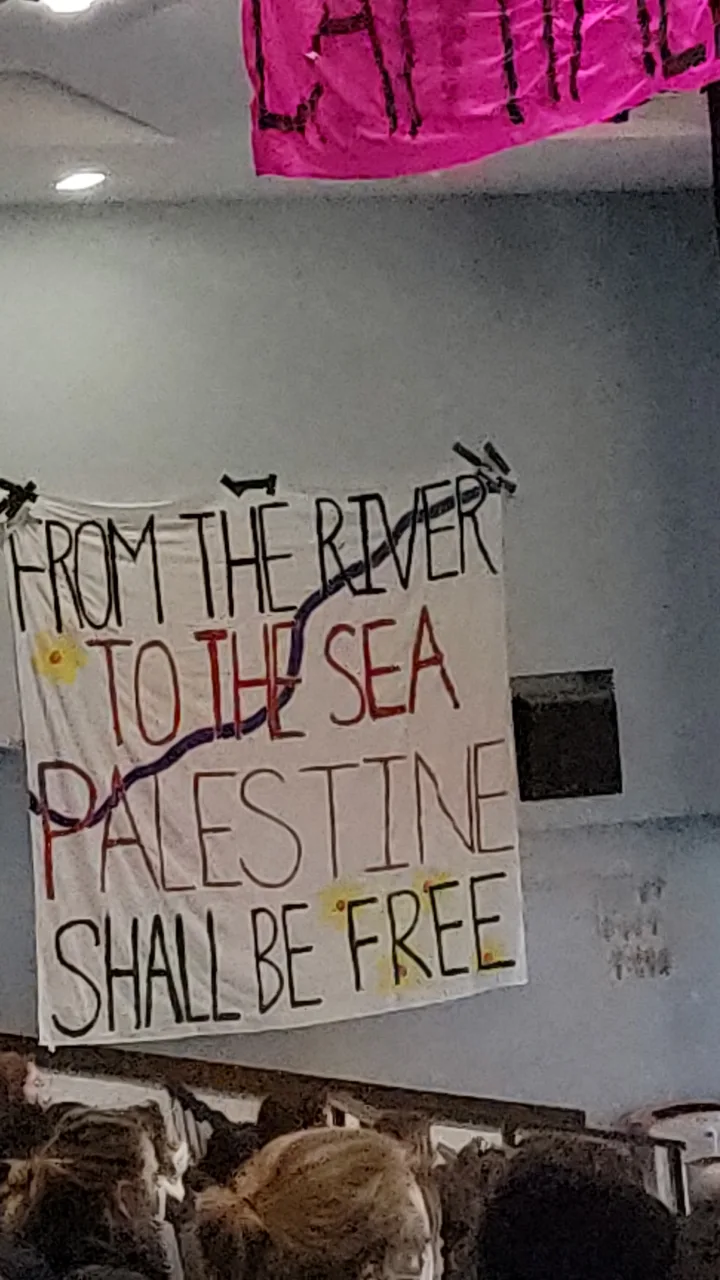 FROM THE RIVER
TO THE SEA
PALESTINE
SHALL BE FREE